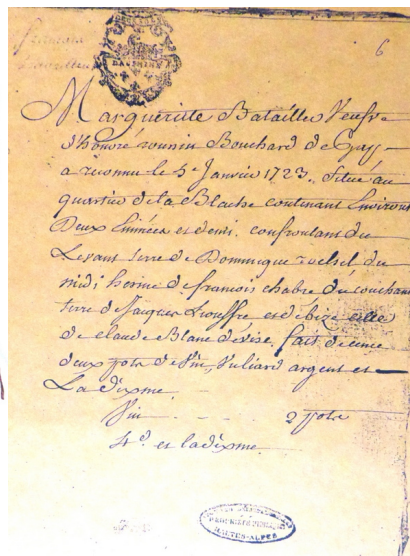 6
DAUPHINÉ
Marguerite Bataille Veufve
d'honoré Bouchard de Gap
a reconnu le 5e Janvier 1723. Situé au
quartier de la Blache contenant Environ
Deux Eminées et demi confrontant du
Levant terre de Dominique du
midi herme de françois chabre du couchant
terre de Jaques et de bize celle
de claude Blanc fait de cence
deux pots de Vin, argent et
La dixme
Vin . . . 2 pots
4d. et la dixme.
HAUTES-ALPES